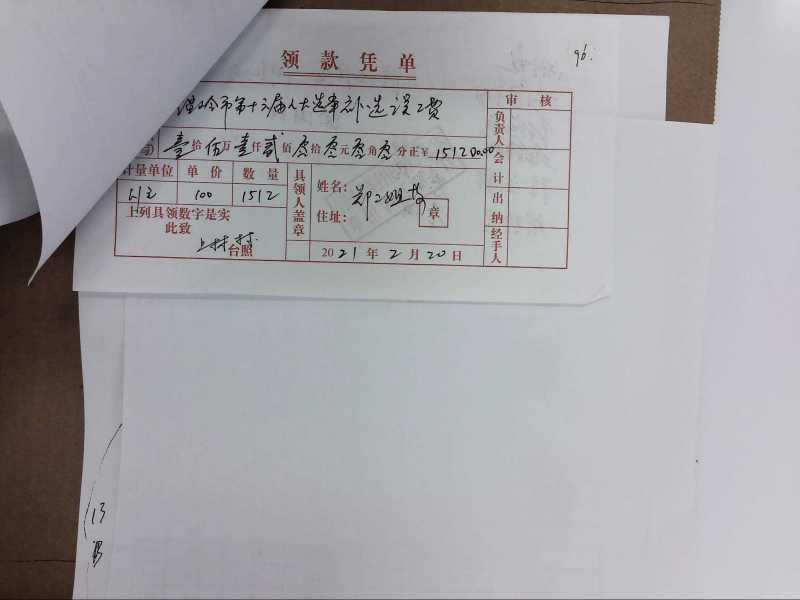 96.
领款凭单
温岭市第十六届人大选举补选误工费
壹拾伍万壹仟贰佰零拾零元零角零分正￥151200.00
计量单位 单价 数量
100 1512
上列具领数字是实
此致
上林村台照
具领人盖章
姓名：郑
住址：
章
2021年2月20日
审核
负责人
会计
出纳
经手人
13